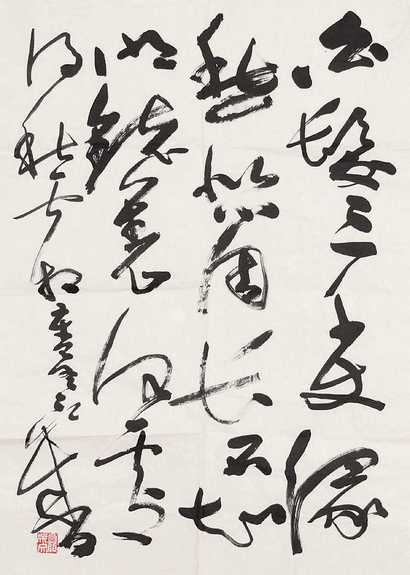 白髮三千丈緣
愁似個長不知
明鏡裏何處
得秋霜